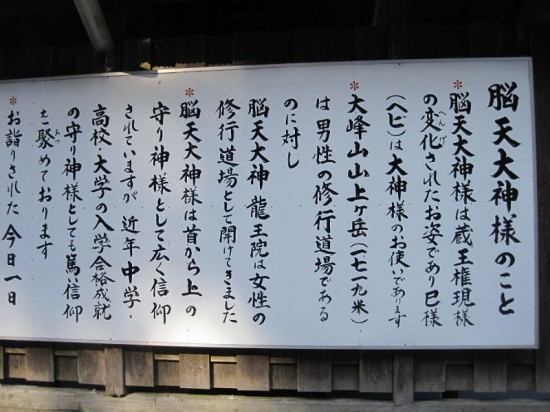 脳天大神様のこと
*脳天大神様は蔵王権現様
の変化されたお姿であり巳様
へんげ
(ヘビ)は大神様のお使いであります
*大峰山山上ヶ岳(一七一九米)
は男性の修行道場である
のに対し
脳天大神龍王院は女性の
修行道場として開けてきました
*脳天大神様は首から上の
守り神様として広く信仰
されていますが近年中学・
高校・大学の入学合格成就
の守り神様としても篤い信仰
を聚めております
あつ
*お詣りされた今日一日